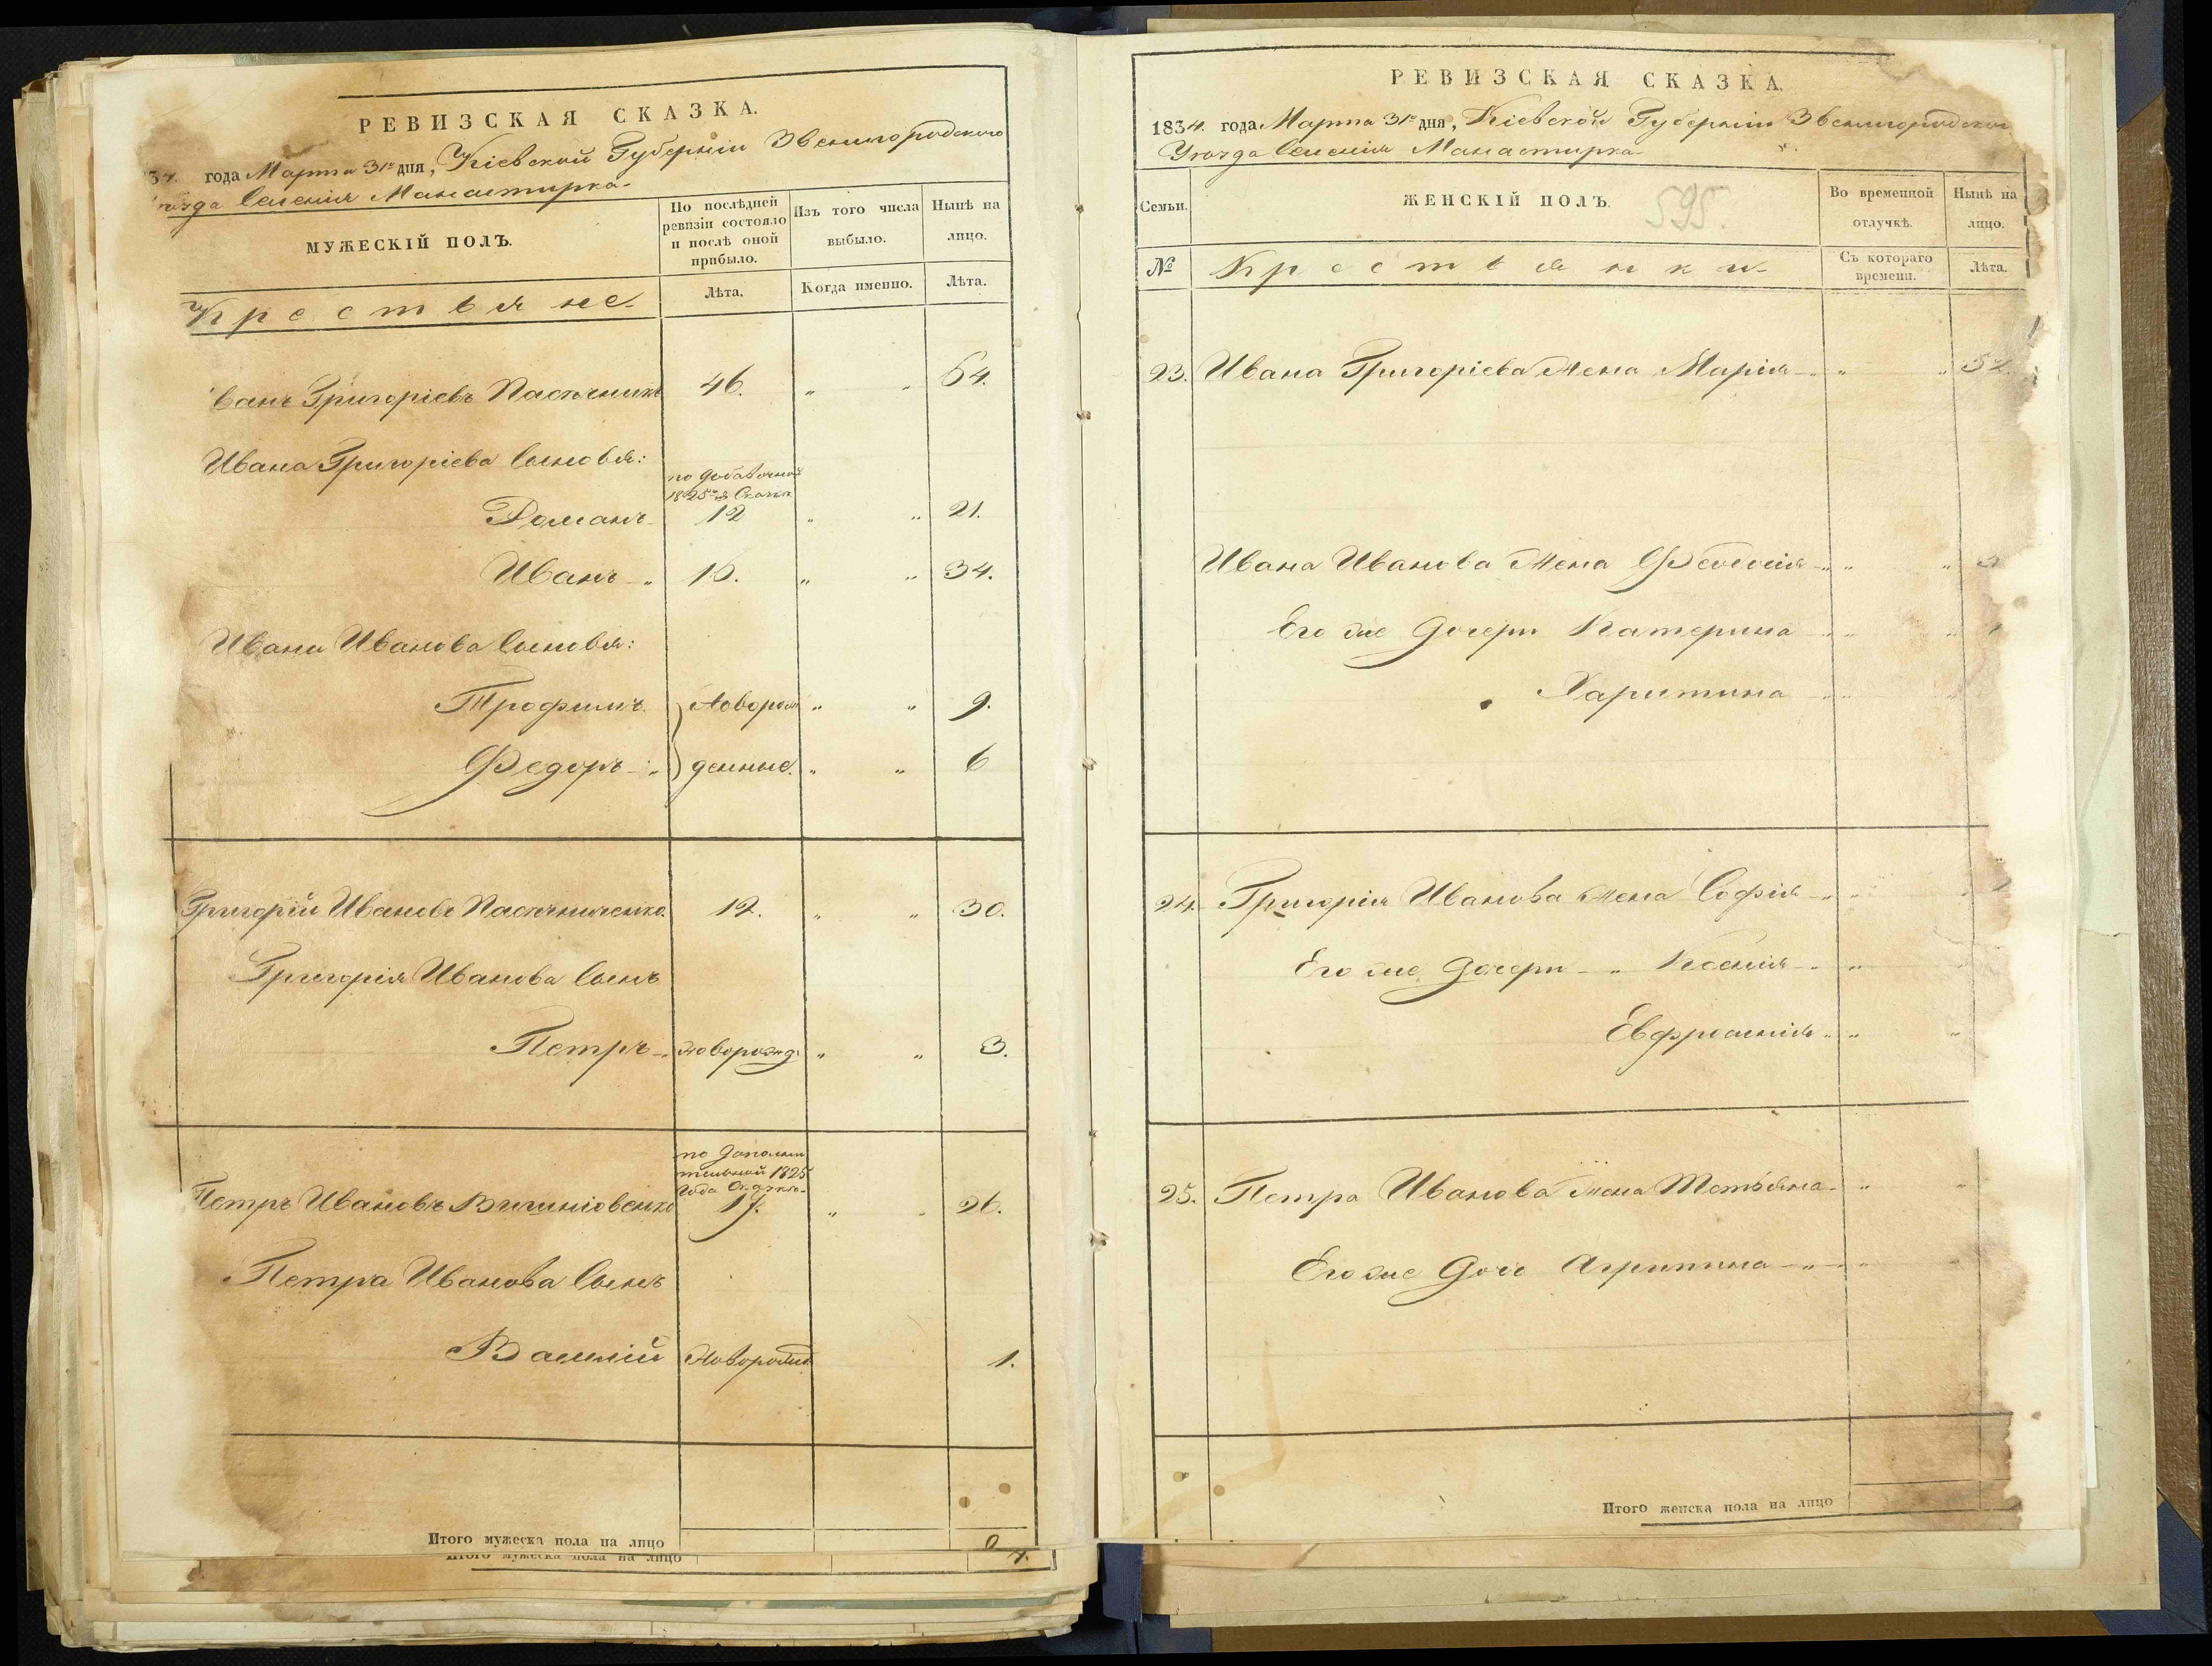 РЕВИЗСКАЯ СКАЗКА.
34. года Марта 31го дня, Кіевской Губерніи Звенигородского
уѣзда Селенія Манастирка
МУЖЕСКІЙ ПОЛЪ.
По послѣдней ревизіи состояло и послѣ оной прибыло.
Изъ того числа выбыло.
Нынѣ на лицо.
Крестьяне.
Лѣта.
Когда именно.
Лѣта.
Иванъ Григоріевъ Пасѣчникъ 46. „ „ 64.
Ивана Григоріева Сыновья:
по добавочной
1825го Сказкѣ
Романъ 12 „ „ 21.
Иванъ „ 16. „ „ 34.
Ивана Иванова Сыновья:
Трофимъ новорож „ „ 9.
Федоръ „ денные. „ „ 6
Григорій Ивановъ Пасѣчниченко 12. „ „ 30.
Григорія Иванова Сынъ
Петръ „ новорожд. „ „ 3.
по дополни
тельной 1825
года Сказкѣ
Петръ Ивановъ 17. „ „ 26.
Петра Иванова Сынъ
Василій Новорожд 1.
Итого мужеска пола на лицо
Итого мужеска пола на лицо
РЕВИЗСКАЯ СКАЗКА.
1834. года Марта 31го дня, Кіевской Губерніи Звенигородского
Уѣзда Селенія Манастирка
Семьи.
ЖЕНСКІЙ ПОЛЪ.
595.
Во временной отлучкѣ.
Нынѣ на лицо.
№
Крестьянки
Съ котораго времени.
Лѣта.
23. Ивана Григоріева Жена Марія „ „
Ивана Иванова Жена Феодосія „ „
Его же дочери Катерина „ „
Харитина „ „
24. Григорія Иванова жена Софія „ „
Его же дочери „ Ксенія „ „
Евфросинія „ „
25. Петра Иванова жена Татьяна „ „
Его же дочь Агрипина „ „
Итого женска пола на лицо